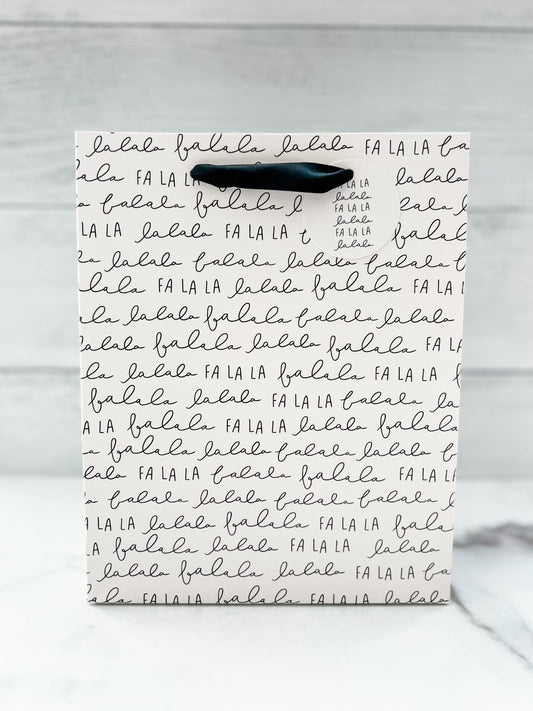 lalala falala lalala FA LA LA fa
ala FA LA L
lalala FA LA LA lalala falala l
FA LA LA lalala FA LA LA falala
LA LA
lalala
FA LA LA
lalala
FA LA LA
lalala
lalala falala lalala falala lalala
FA LA LA lalala falala FA LA LA
lalala falala lalala
falala lalala falala FA L
lalala FA LA LA falala FA LA LA
falala FA LA LA falala la
LA falala FA LA LA lalala
lalala falala lalala
lalala FA LA LA falala falala FA L
falala lalala falala lalala
A LA LA lalala falala FA LA LA fala
LA falala lalala FA LA LA lalala
lalala falala lalala FA LA LA fa
lala FA LA LA falala FA LA LA lalala